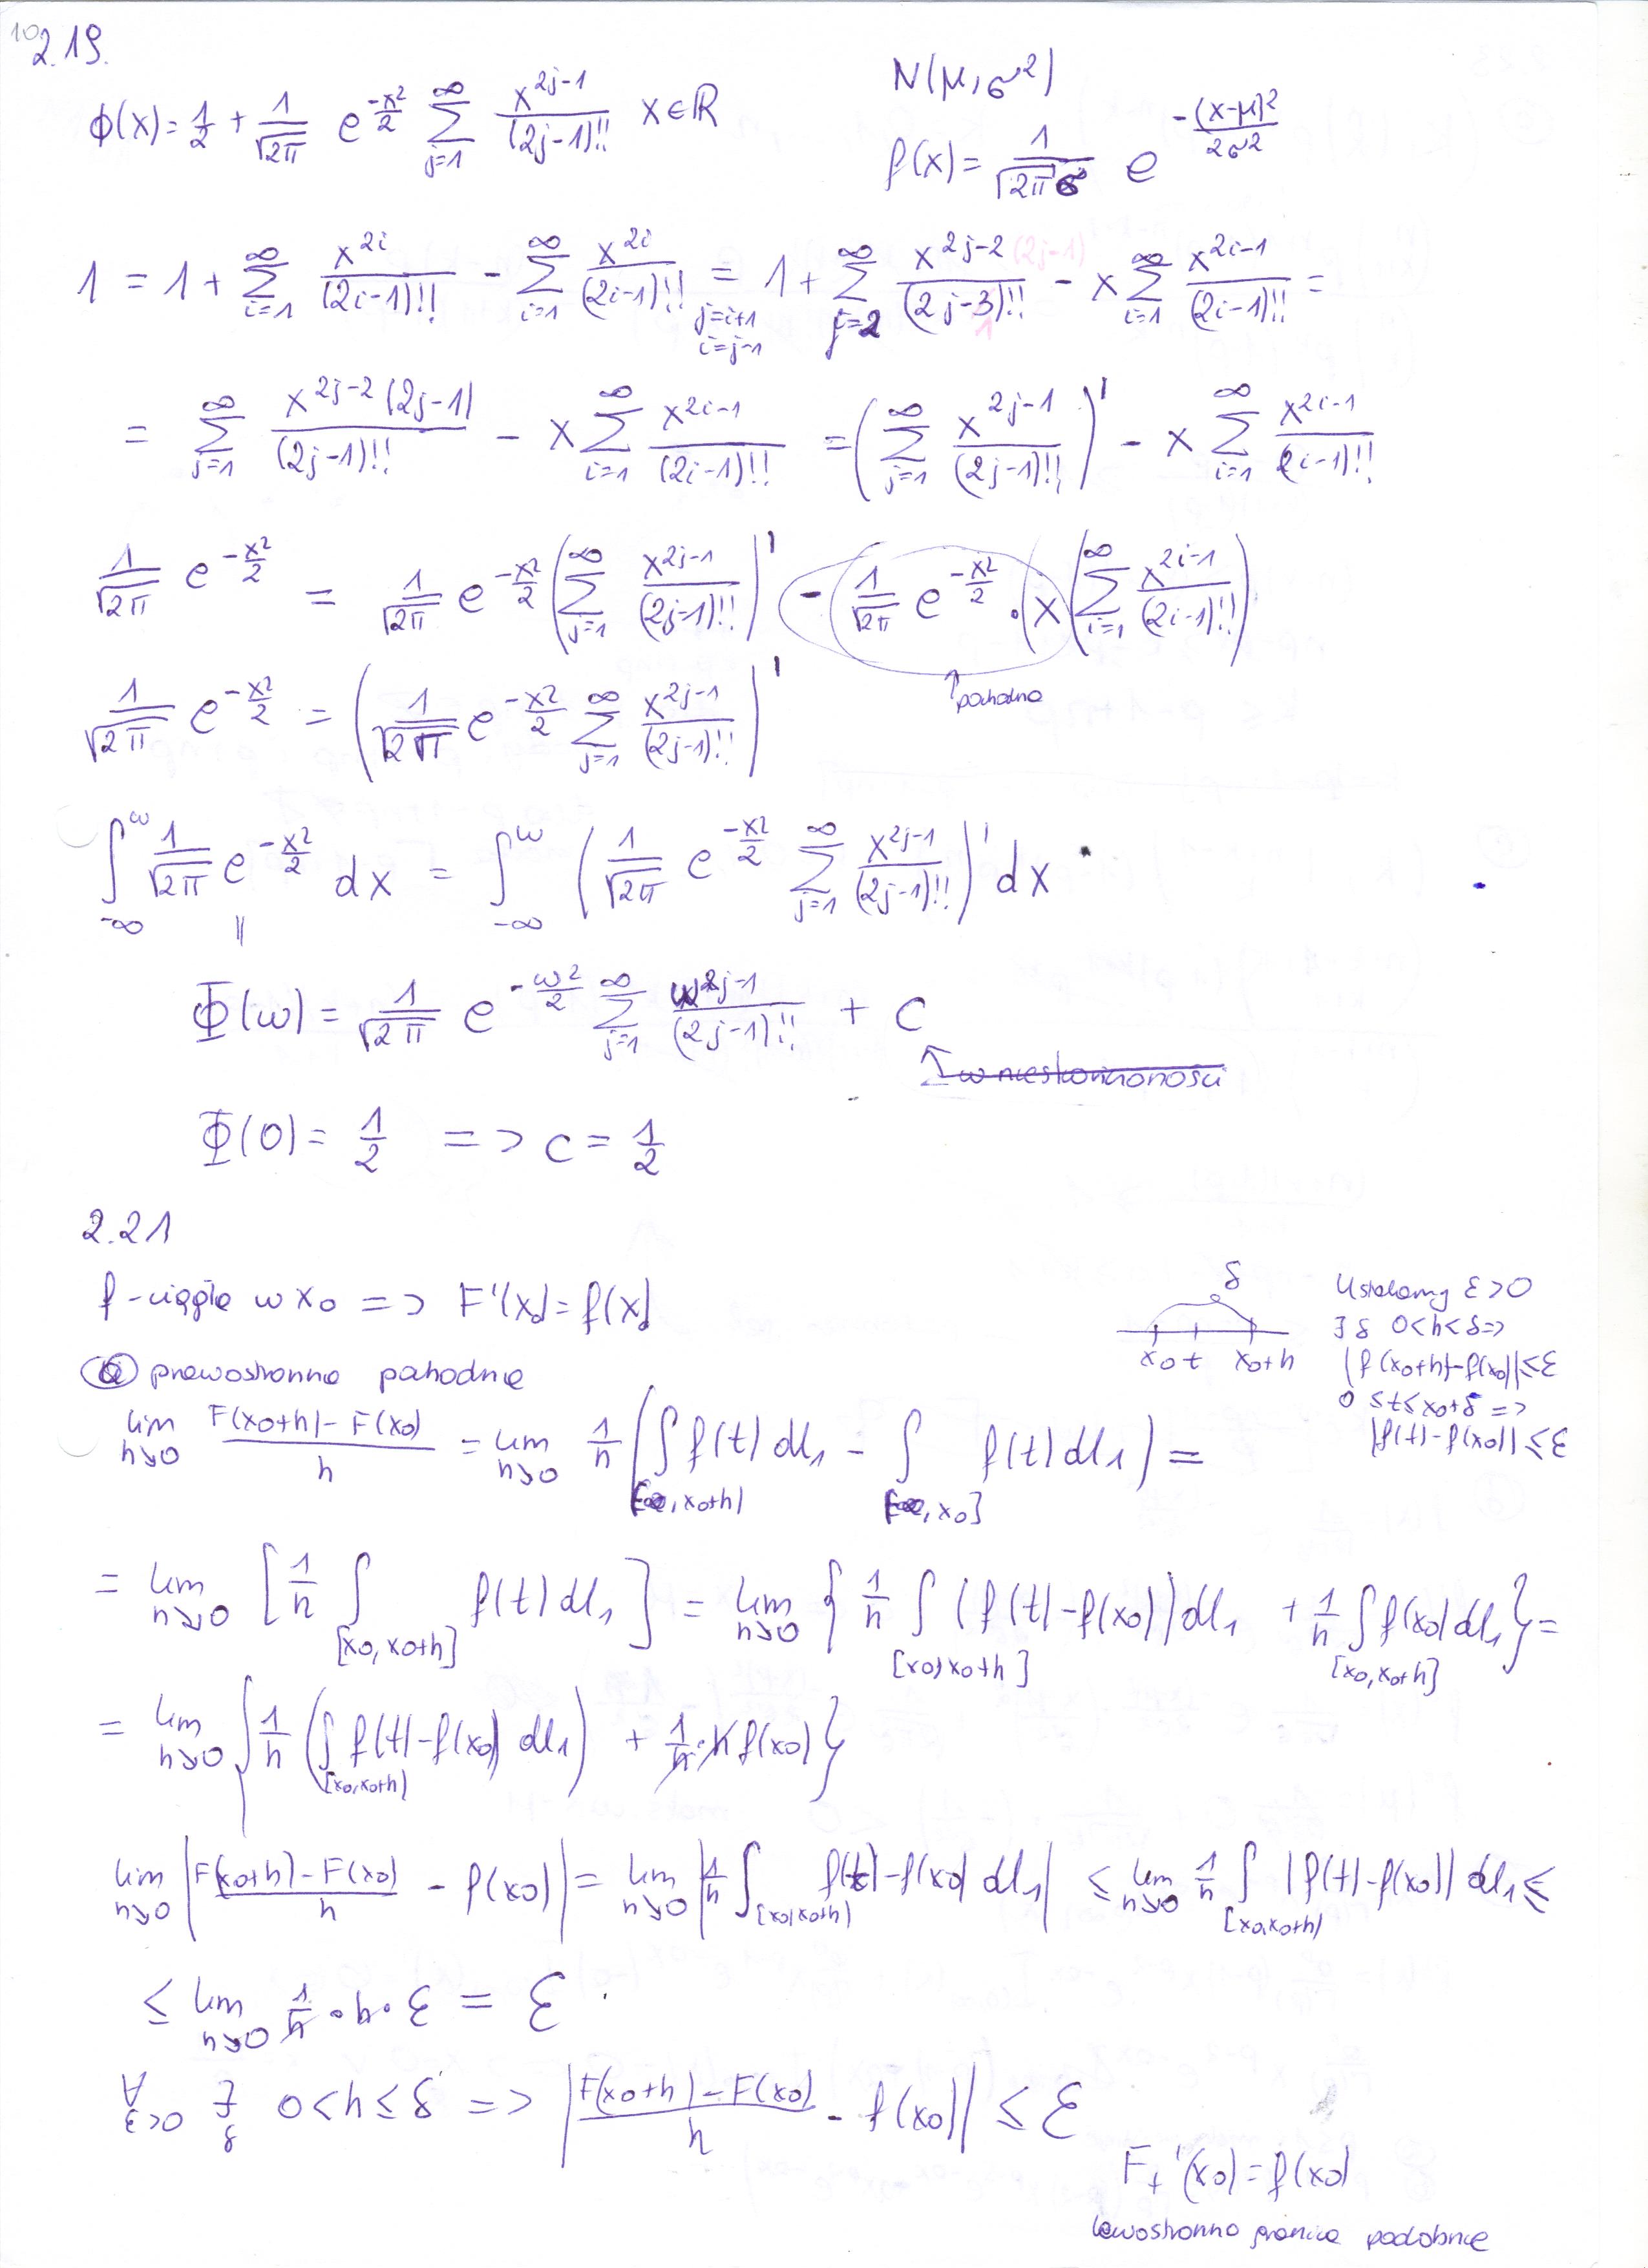 10
2.19.
ϕ(x) = 1/2 + 1/√2π e^{-x²/2} ∑_{j=1}^{∞} x^{2j-1}/(2j-1)!! x∈ℝ
N(μ,σ²)
f(x) = 1/(√2π σ) e^{-(x-μ)²/2σ²}
1 = 1 + ∑_{i=1}^{∞} x^{2i}/(2i-1)!! - ∑_{i=1}^{∞} x^{2i}/(2i-1)!! = 1 + ∑_{j=2}^{∞} x^{2j-2} (2j-1)/(2j-3)!! - x ∑_{i=1}^{∞} x^{2i-1}/(2i-1)!! =
j=i+1
i=j-1
1
= ∑_{j=1}^{∞} x^{2j-2}(2j-1)/(2j-1)!! - x ∑_{i=1}^{∞} x^{2i-1}/(2i-1)!! = (∑_{j=1}^{∞} x^{2j-1}/(2j-1)!!)' - x ∑_{i=1}^{∞} x^{2i-1}/(2i-1)!!
1/√2π e^{-x²/2} = 1/√2π e^{-x²/2} (∑_{j=1}^{∞} x^{2j-1}/(2j-1)!!)' - 1/√2π e^{-x²/2} · (x (∑_{i=1}^{∞} x^{2i-1}/(2i-1)!!)
↑ pochodna
1/√2π e^{-x²/2} = (1/√2π e^{-x²/2} ∑_{j=1}^{∞} x^{2j-1}/(2j-1)!!)'
∫_{-∞}^{ω} 1/√2π e^{-x²/2} dx = ∫_{-∞}^{ω} (1/√2π e^{-x²/2} ∑_{j=1}^{∞} x^{2j-1}/(2j-1)!!)' dx
||
Φ(ω) = 1/√2π e^{-ω²/2} ∑_{j=1}^{∞} ω^{2j-1}/(2j-1)!! + C
↑ w nieskończoności
Φ(0) = 1/2 => C = 1/2
2.21
f - ciągła w x₀ => F'(x₀) = f(x₀)
δ
x₀ t x₀+h
Ustalamy ε>0
∃ δ 0<h<δ =>
|f(x₀+h)-f(x₀)| ≤ ε
0 ≤ t ≤ x₀+δ =>
|f(t)-f(x₀)| ≤ ε
a) prawostronna pochodna
lim_{h↘0} F(x₀+h)-F(x₀)/h = lim_{h↘0} 1/h (∫_{[-∞,x₀+h)} f(t) dl₁ - ∫_{[-∞,x₀]} f(t) dl₁) =
= lim_{h↘0} [1/h ∫_{[x₀,x₀+h]} f(t) dl₁] = lim_{h↘0} {1/h ∫_{[x₀,x₀+h]} (f(t)-f(x₀)) dl₁ + 1/h ∫_{[x₀,x₀+h]} f(x₀) dl₁} =
= lim_{h↘0} {1/h (∫_{[x₀,x₀+h)} f(t)-f(x₀) dl₁) + 1/h · h f(x₀)}
lim_{h↘0} |F(x₀+h)-F(x₀)/h - f(x₀)| = lim_{h↘0} |1/h ∫_{[x₀,x₀+h)} f(t)-f(x₀) dl₁| ≤ lim_{h↘0} 1/h ∫_{[x₀,x₀+h)} |f(t)-f(x₀)| dl₁ ≤
≤ lim_{h↘0} 1/h · h · ε = ε
∀_{ε>0} ∃_{δ} 0<h≤δ => |F(x₀+h)-F(x₀)/h - f(x₀)| ≤ ε
F₊'(x₀) = f(x₀)
lewostronna granica podobnie